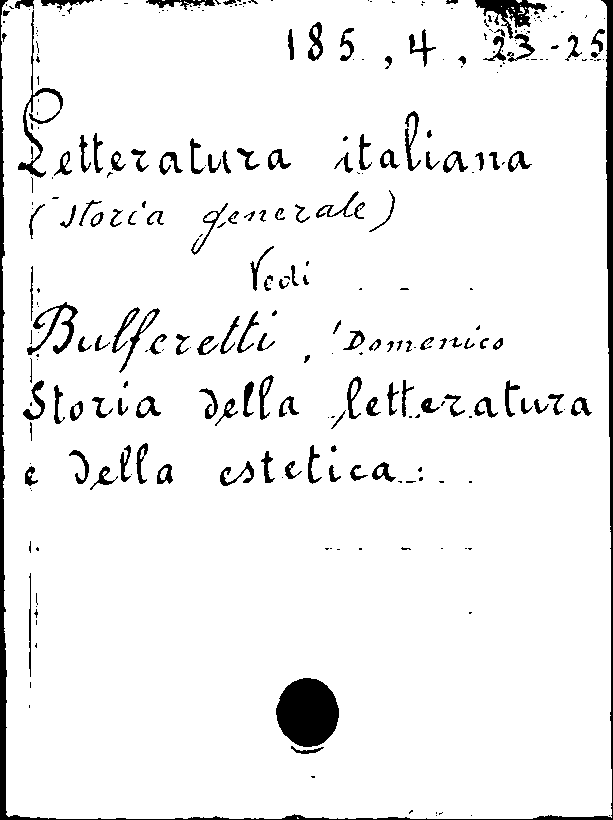 185, 4, 23-25
Letteratura italiana
(Storia generale)
Vedi
Bulferetti, Domenico
Storia della letteratura
e della estetica...